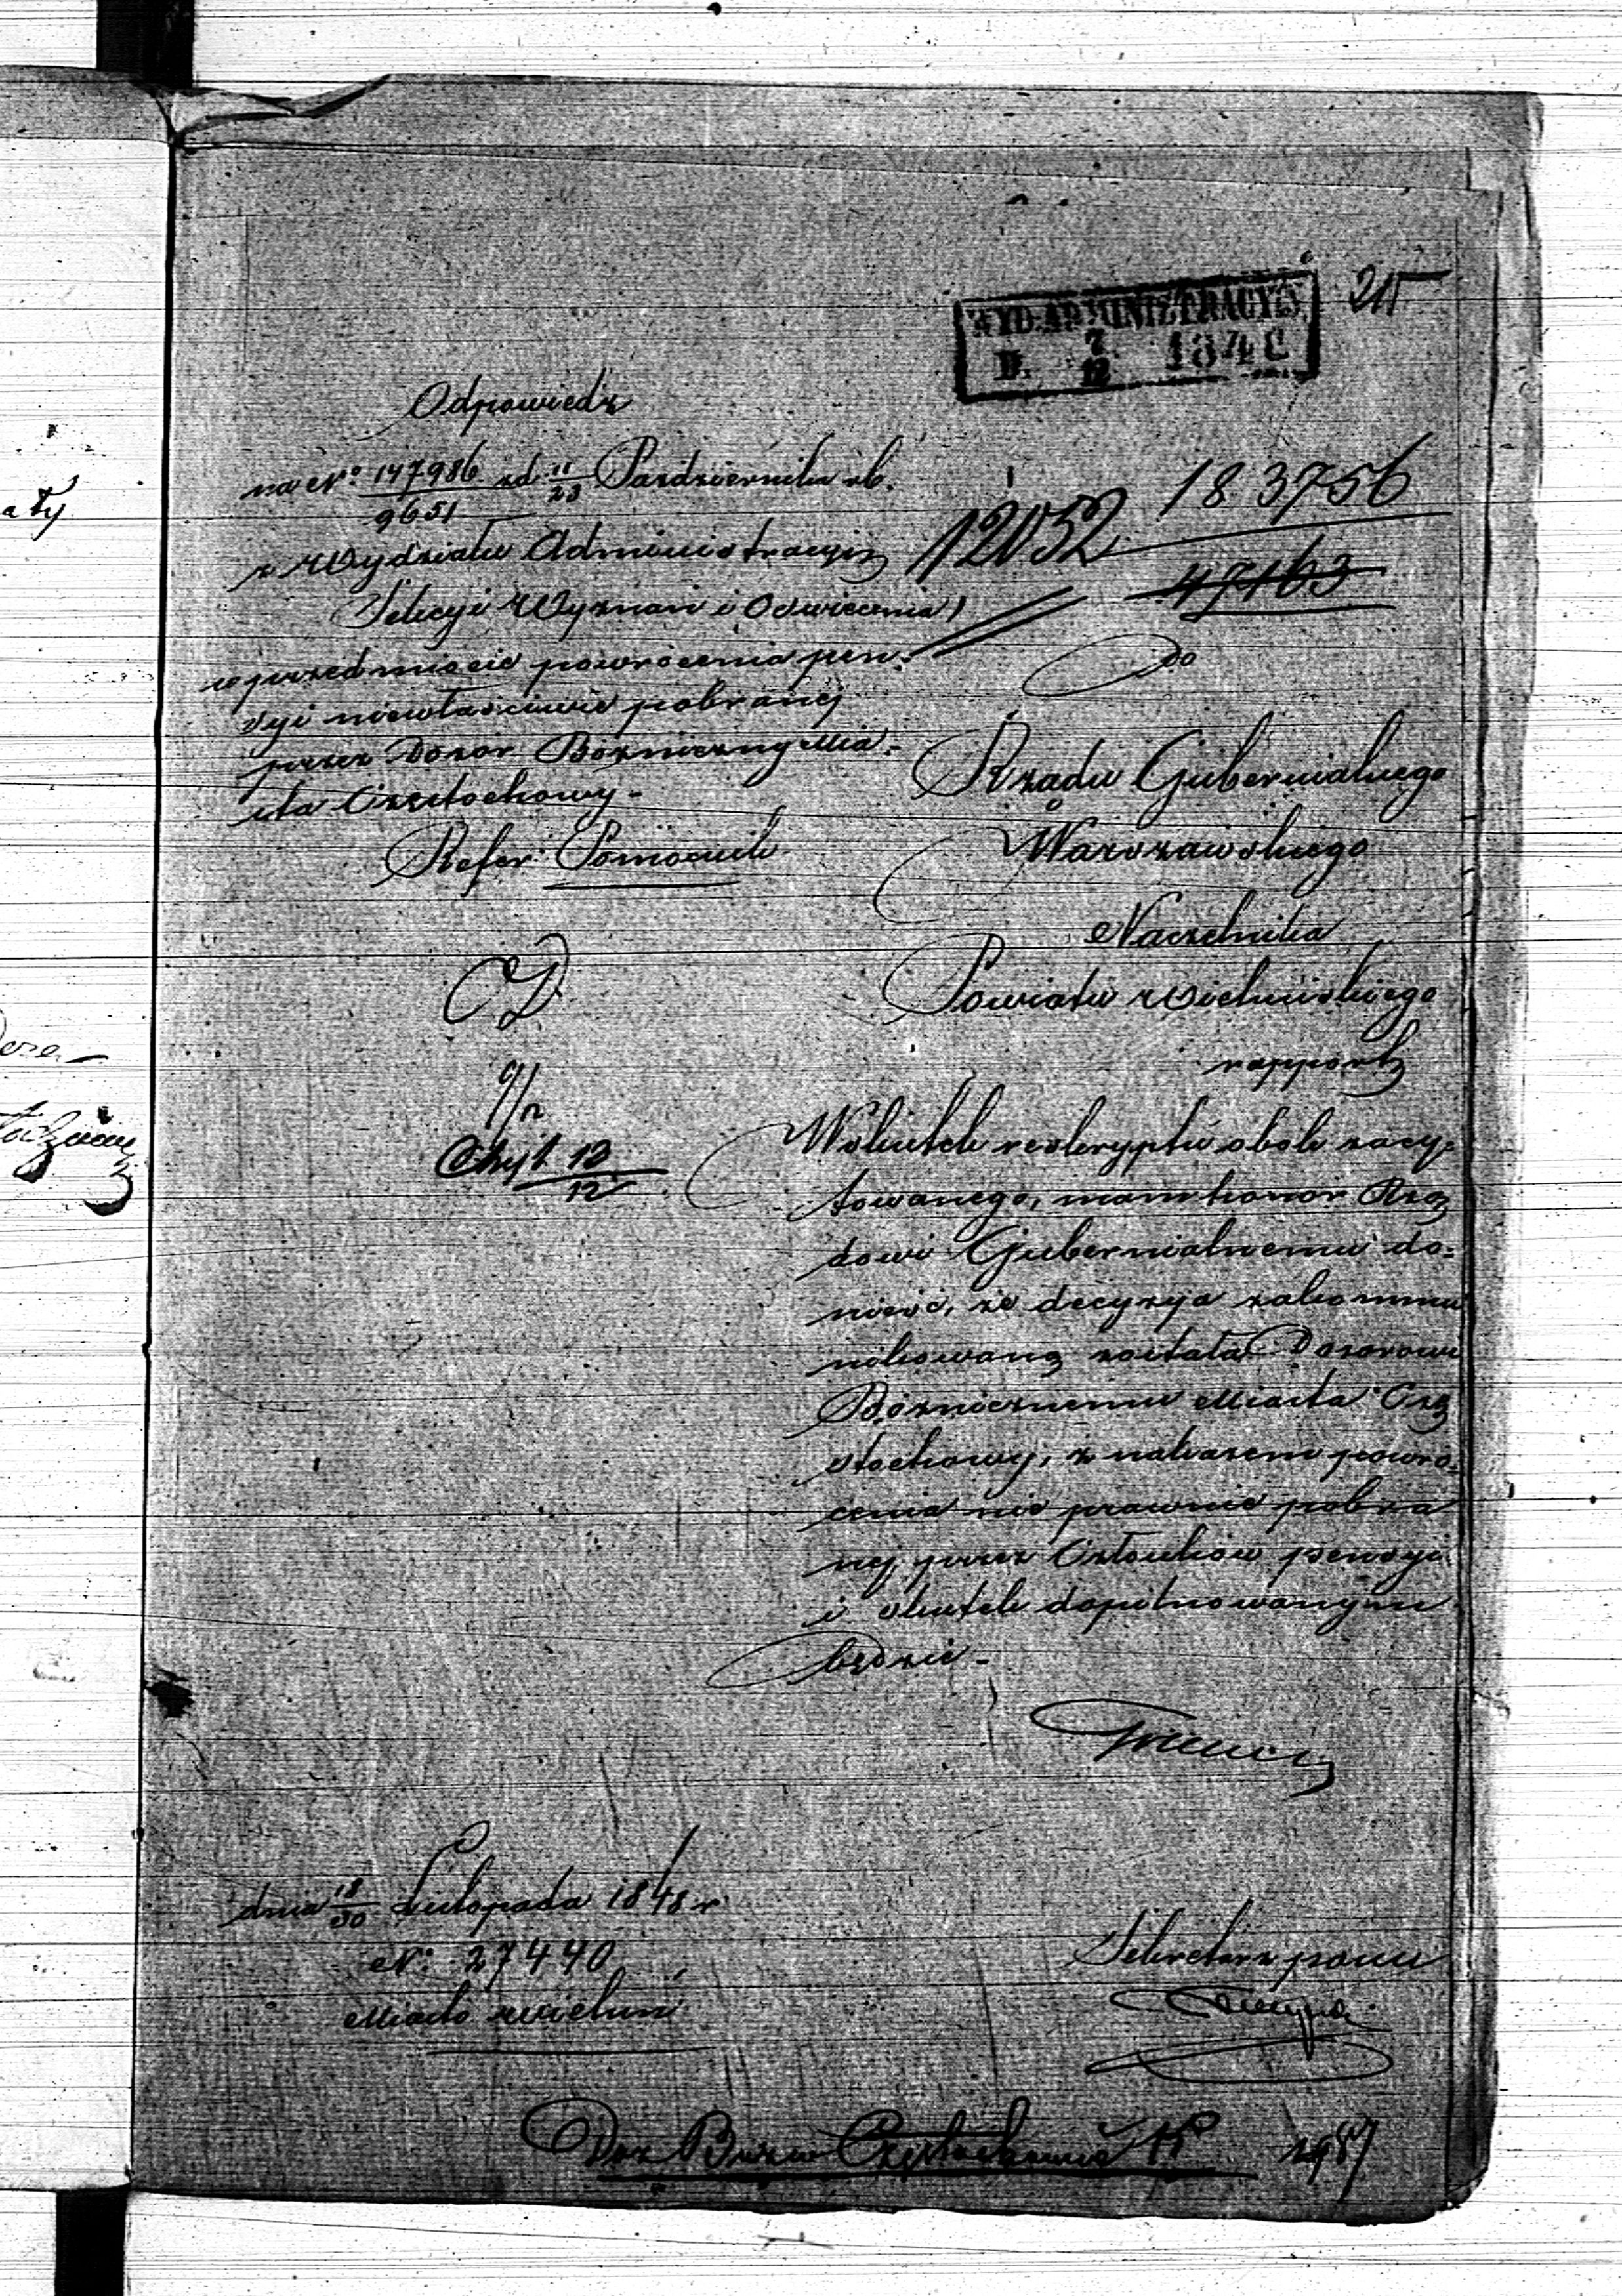 WYD. ADMINISTRACYJ.
D. 7/12 184 8
215
Odpowiedz
na No: 147986/9651 zd 11/23 Pazdziernika rb.
z Wydziału Administracyi
Sekcyi Wyznań i Oświecenia
w przedmiocie powrócenia pen-
syi niewłaściwie pobranej
przez Dozór Bóżniczny Mia-
sta Częstochowy -
Refer: Pomocnik
183756
12052
47163
Do
Rządu Gubernialnego
Warszawskiego
Naczelnika
Powiatu Wieluńskiego
rapport
12/12
Wskutek reskryptu obok zacy-
towanego, mam honor Rzą
dowi Gubernialnemu do-
nieść, że decyzya zakommu
nikowaną została Dozorowi
Bóżnicznemu Miasta Czę
stochowy, z nakazem powró-
cenia nie prawnie pobra
nej przez Członków pensyi
i skutek dopilnowanym
będzie -
dnia 18/30 Listopada 1848 r
No: 27440
Miasto Wieluń
Sekretarz powu
Doz Bożn Częstochowa